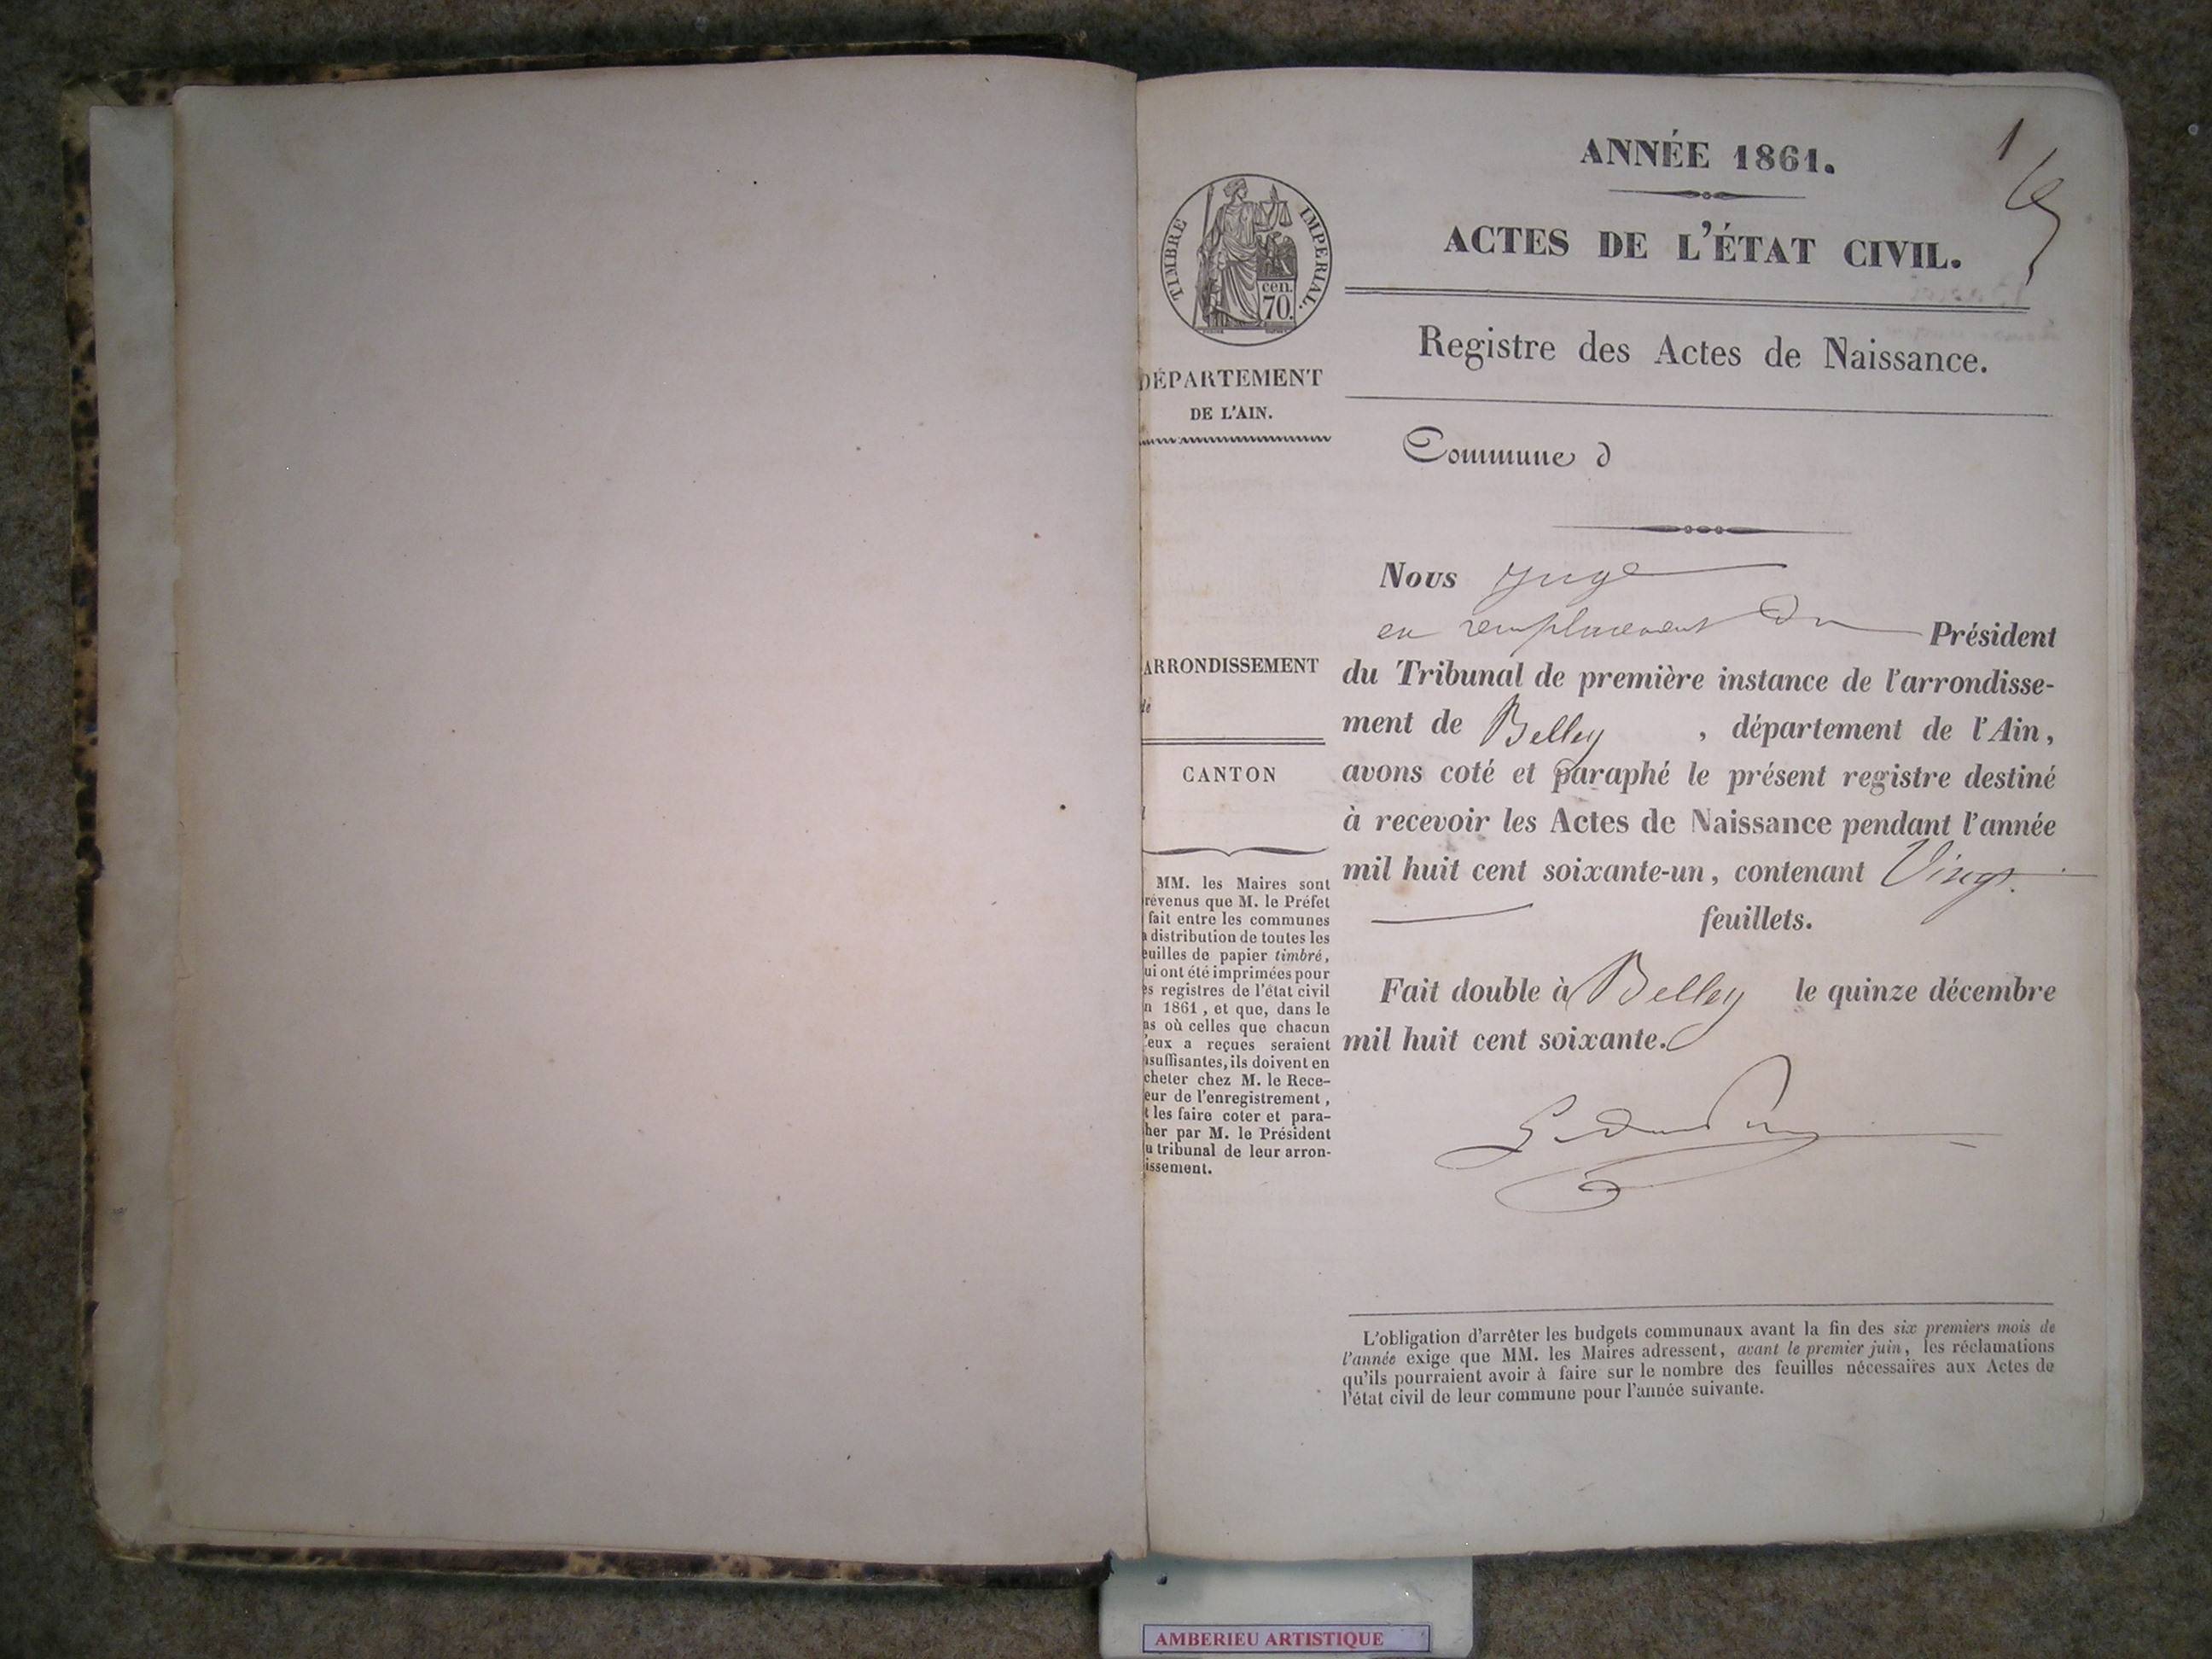 ANNÉE 1861.
1
ACTES DE L'ÉTAT CIVIL.
Registre des Actes de Naissance.
Commune d
Nous Juge
en remplacement du Président
du Tribunal de première instance de l'arrondisse-
ment de Belley , département de l'Ain,
avons coté et paraphé le présent registre destiné
à recevoir les Actes de Naissance pendant l'année
mil huit cent soixante-un, contenant Vingt
feuillets.
Fait double à Belley le quinze décembre
mil huit cent soixante.
L'obligation d'arrêter les budgets communaux avant la fin des six premiers mois de
l'année exige que MM. les Maires adressent, avant le premier juin, les réclamations
qu'ils pourraient avoir à faire sur le nombre des feuilles nécessaires aux Actes de
l'état civil de leur commune pour l'année suivante.
TIMBRE IMPERIAL.
cen.
70.
DÉPARTEMENT
DE L'AIN.
ARRONDISSEMENT
de
CANTON
MM. les Maires sont
révenus que M. le Préfet
fait entre les communes
a distribution de toutes les
euilles de papier timbré,
ui ont été imprimées pour
es registres de l'état civil
n 1861, et que, dans le
as où celles que chacun
'eux a reçues seraient
nsuffisantes, ils doivent en
cheter chez M. le Rece-
eur de l'enregistrement,
t les faire coter et para-
her par M. le Président
u tribunal de leur arron-
issement.
AMBERIEU ARTISTIQUE